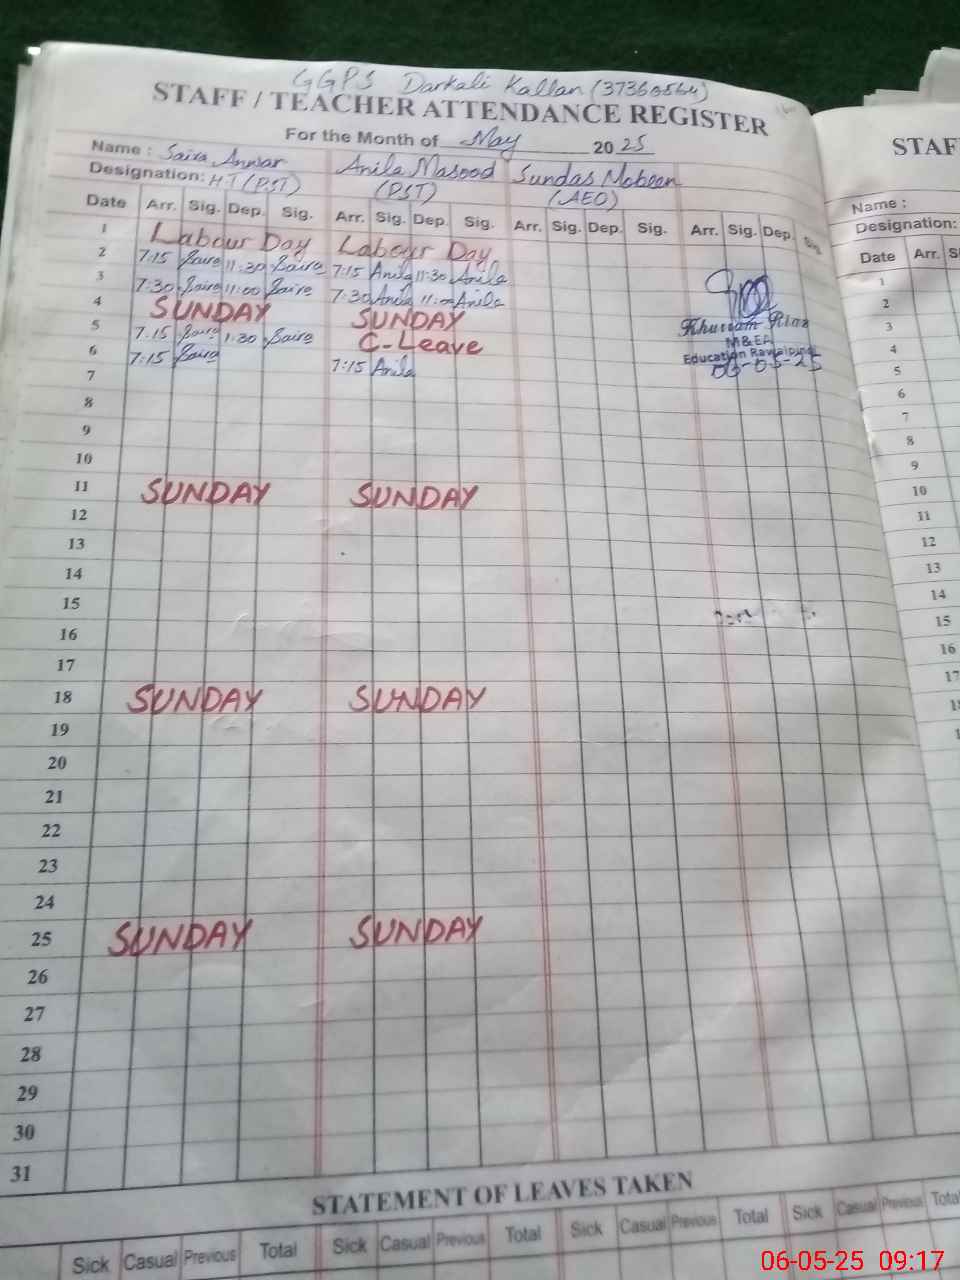 GGPS Darkali Kallan (37360564)
STAFF / TEACHER ATTENDANCE REGISTER
For the Month of May 2025
Name : Saira Anwar Anila Masood Sundas Mobeen
Designation: HT (PST) (PST) (AEO)
Date Arr. Sig. Dep. Sig. Arr. Sig. Dep. Sig. Arr. Sig. Dep. Sig. Arr. Sig. Dep. Sig.
1 Labour Day Labour Day
2 7:15 Saira 11:30 Saira 7:15 Anila 11:30 Anila
3 7:30 Saira 11:00 Saira 7:30 Anila 11:00 Anila
4 SUNDAY SUNDAY
5 7:15 Saira 1:30 Saira C-Leave
6 7:15 Saira 7:15 Anila
Khurram Riaz
M&EA
Education Rawalpindi
06-05-25
7
8
9
10
11 SUNDAY SUNDAY
12
13
14
15
16
17
18 SUNDAY SUNDAY
19
20
21
22
23
24
25 SUNDAY SUNDAY
26
27
28
29
30
31
STATEMENT OF LEAVES TAKEN
Sick Casual Previous Total Sick Casual Previous Total Sick Casual Previous Total Sick Casual Previous Total
STAF
Name :
Designation:
Date Arr. S
1
2
3
4
5
6
7
8
9
10
11
12
13
14
15
16
17
06-05-25 09:17